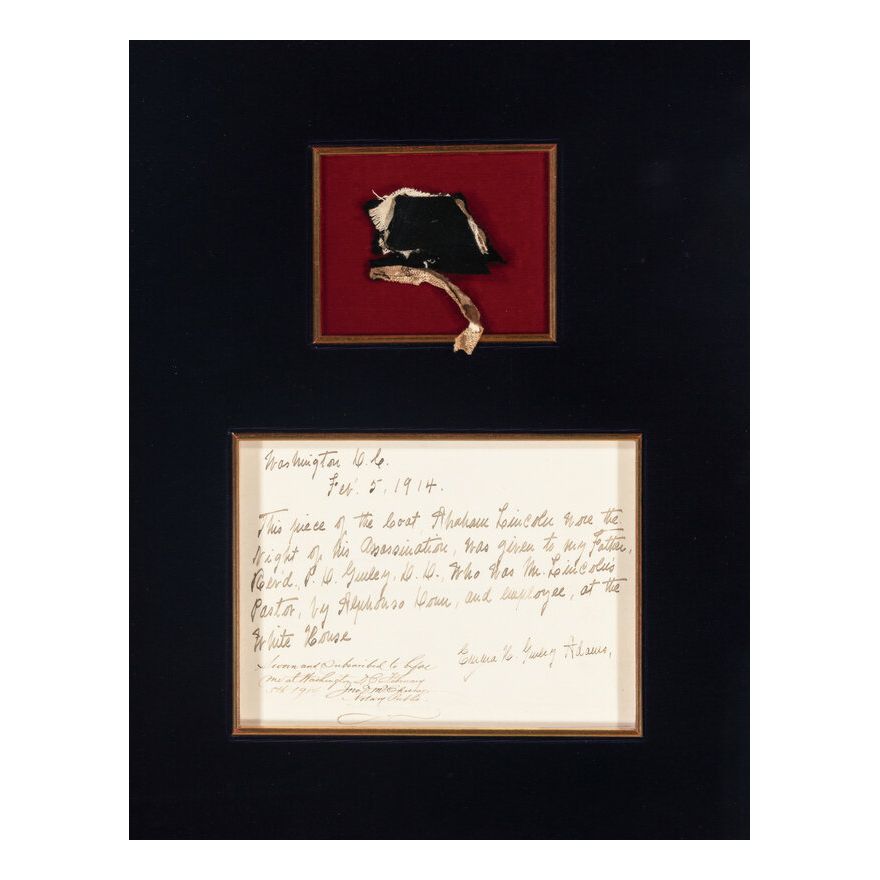 Washington D.C.
Feb. 5, 1914.
This piece of the Coat, Abraham Lincoln wore the
Night of his Assassination, was given to my Father,
Rev'd., P. D. Gurley, D. D., Who was Mr. Lincoln's
Pastor, by Alphonso Donn, and employee, at the
White House
Emma H. Gurley Adams,
Sworn and Subscribed to before
me at Washington D.C. February
5th 1914
Notary Public.